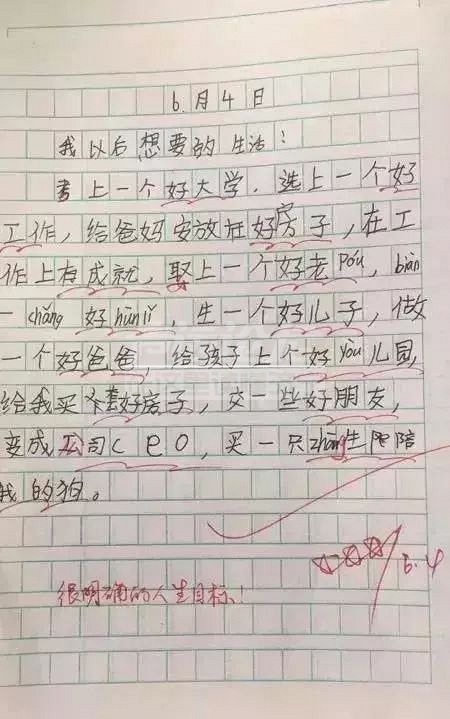 6月4日
我以后想要的生活:
考上一个好大学，选上一个好
工作，给爸妈安放在好房子，在工
作上有成就，娶上一个好老Póu，biàn
一chǎng好hūnlǐ，生一个好儿子，做
一个好爸爸，给孩子上个好yòu儿园，
给我买套好房子，交一些好朋友，
变成公司CEO，买一只zhāng生陪
我的狗。
6.4
很明确的人生目标！